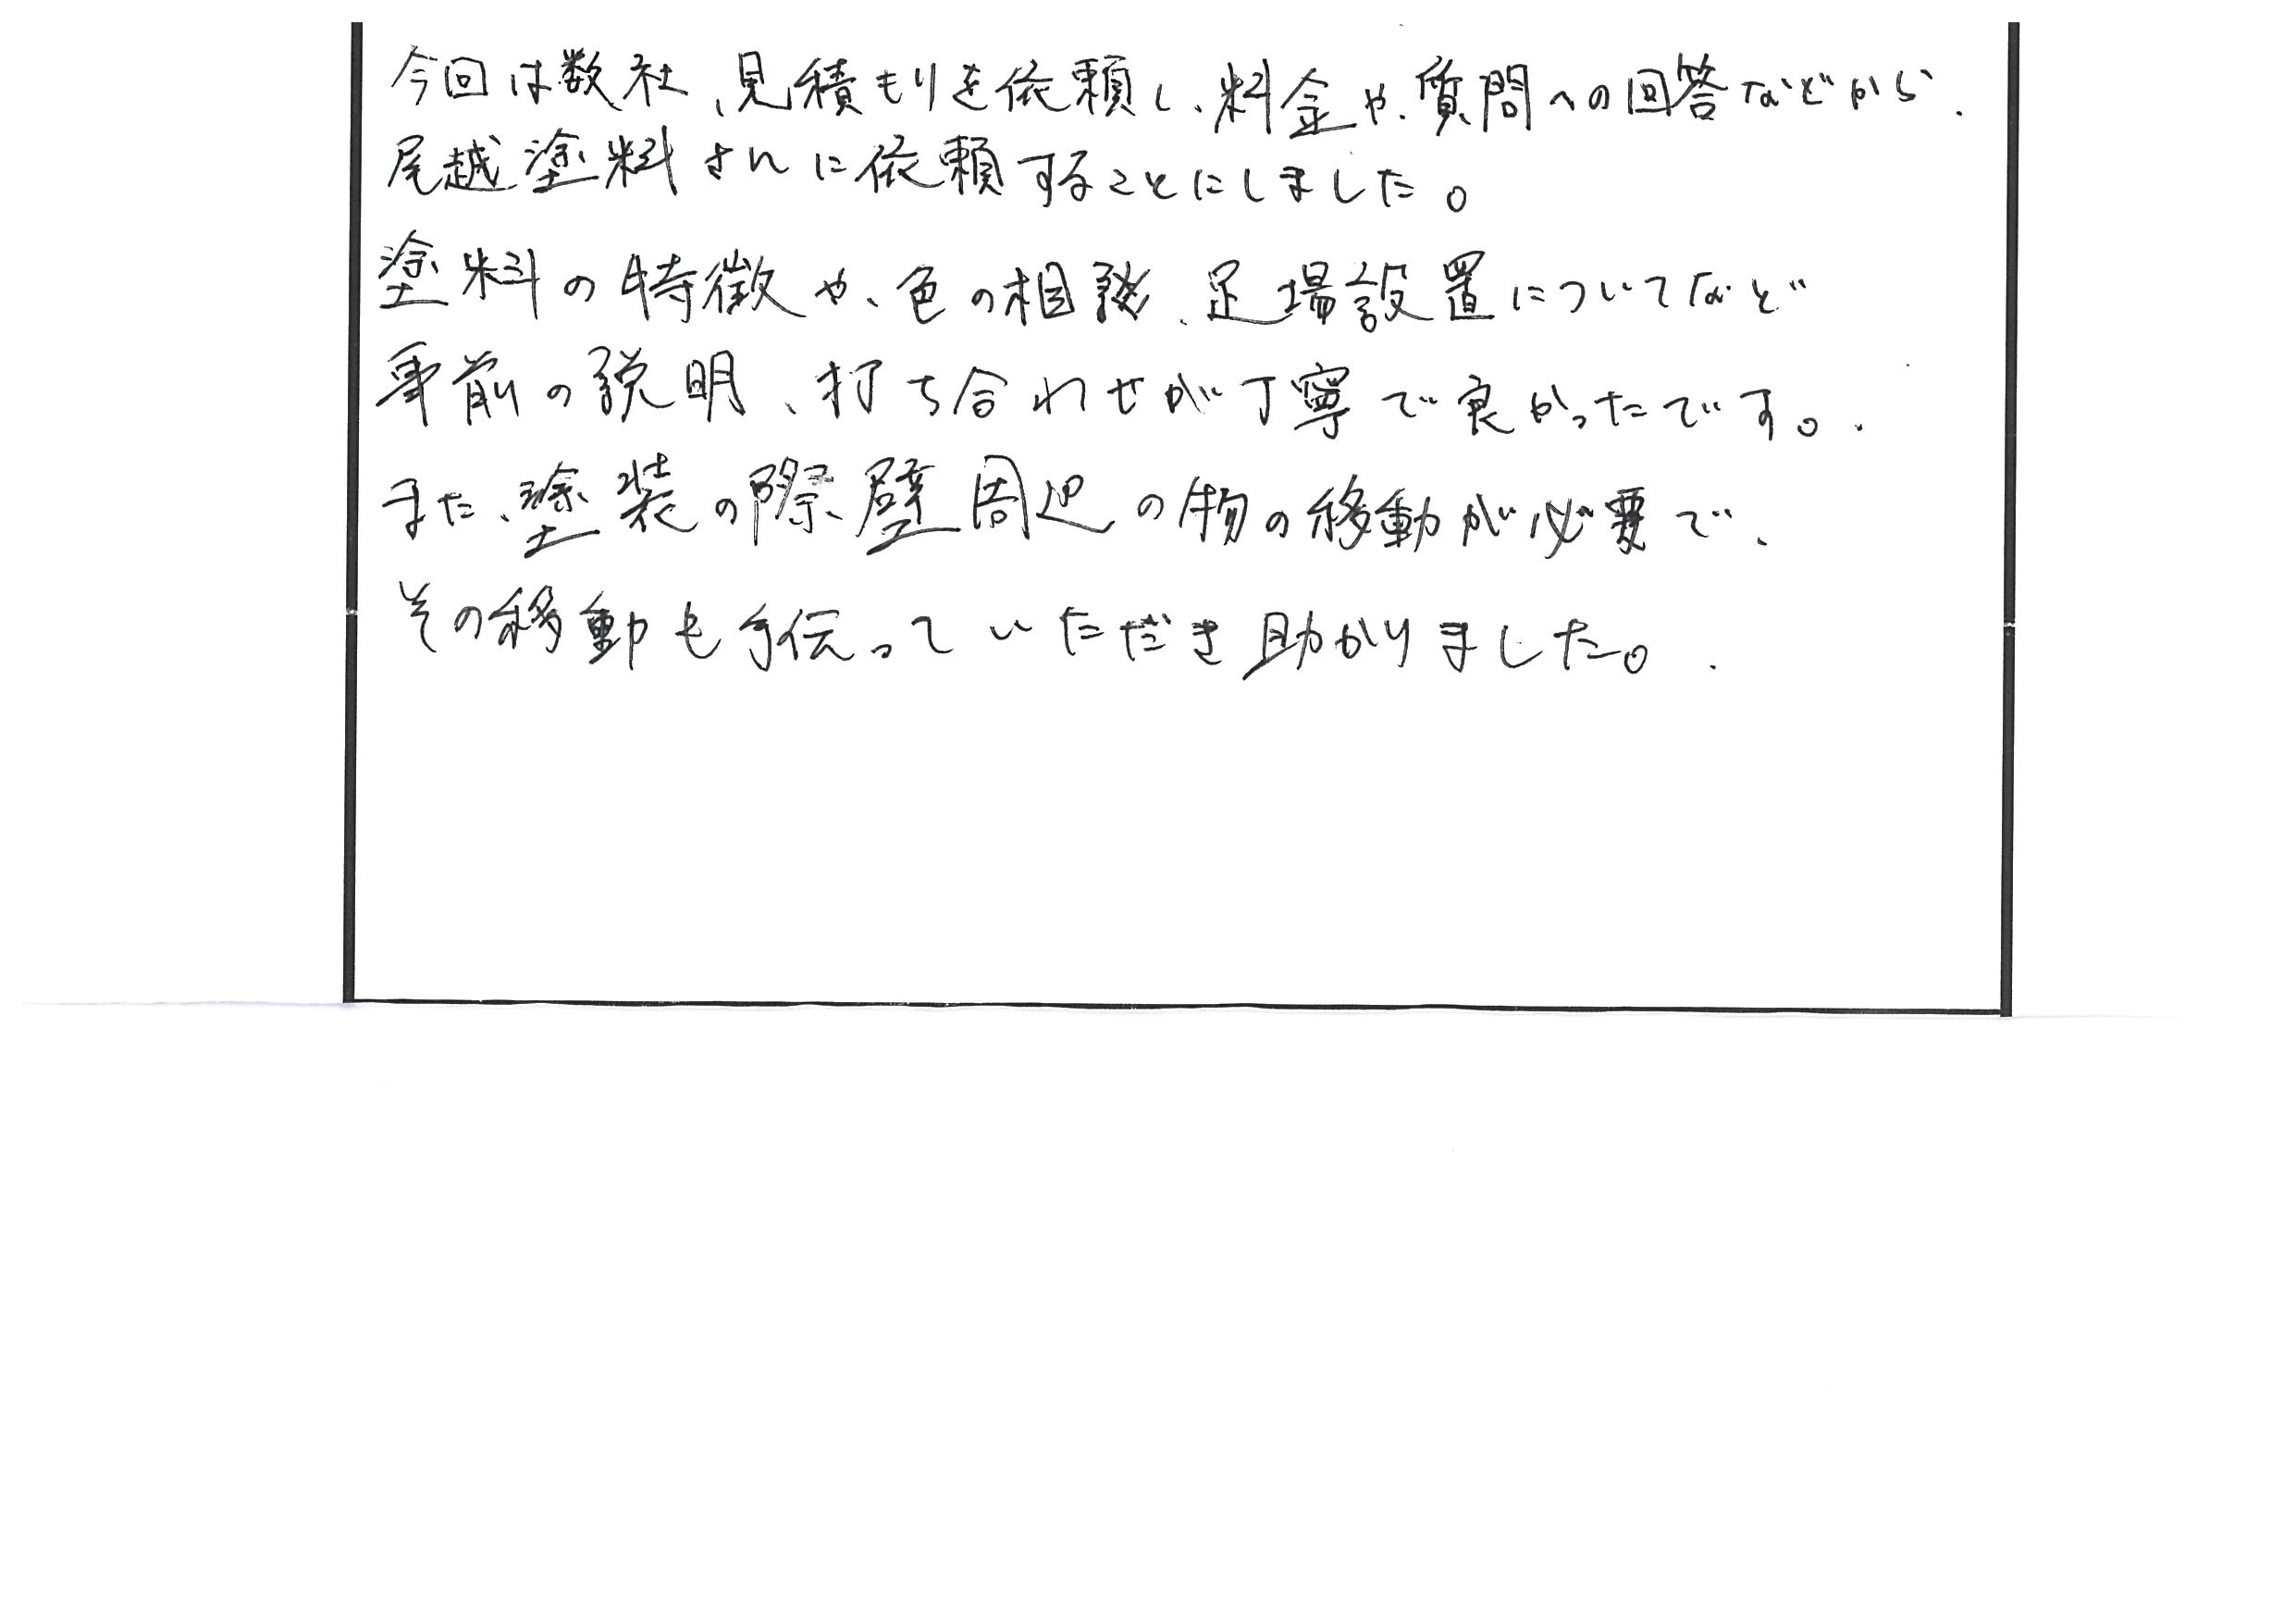 今回は数社、見積もりを依頼し、料金や、質問への回答などから、
尾越塗料さんに依頼することにしました。
塗料の特徴や、色の相談、足場設置についてなど
事前の説明、打ち合わせが丁寧で良かったです。
また、塗装の際、壁周辺の物の移動が必要で、
その移動も手伝っていただき助かりました。